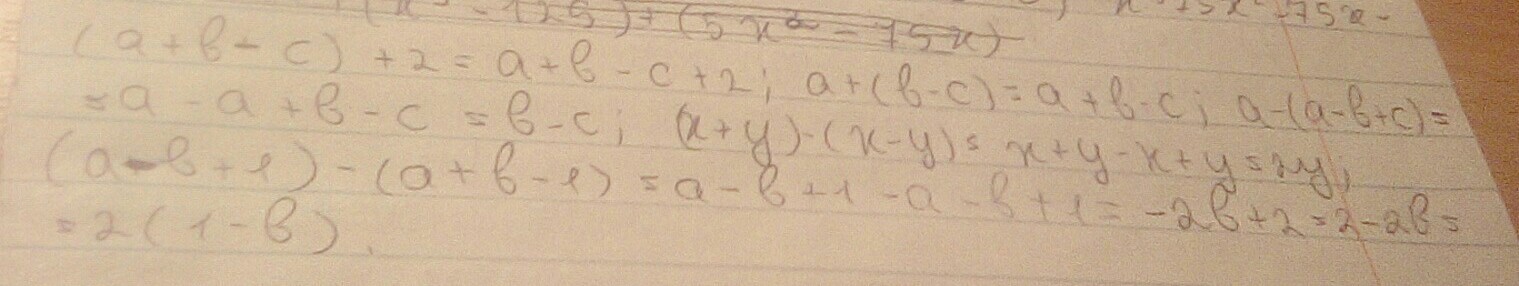 - 125) + (5x² - 75x)
(a + b - c) + 2 = a + b - c + 2; a + (b - c) = a + b - c; a - (a - b + c) =
= a - a + b - c = b - c; (x + y) - (x - y) = x + y - x + y = 2y;
(a - b + 1) - (a + b - 1) = a - b + 1 - a - b + 1 = -2b + 2 = 2 - 2b =
= 2(1 - b).